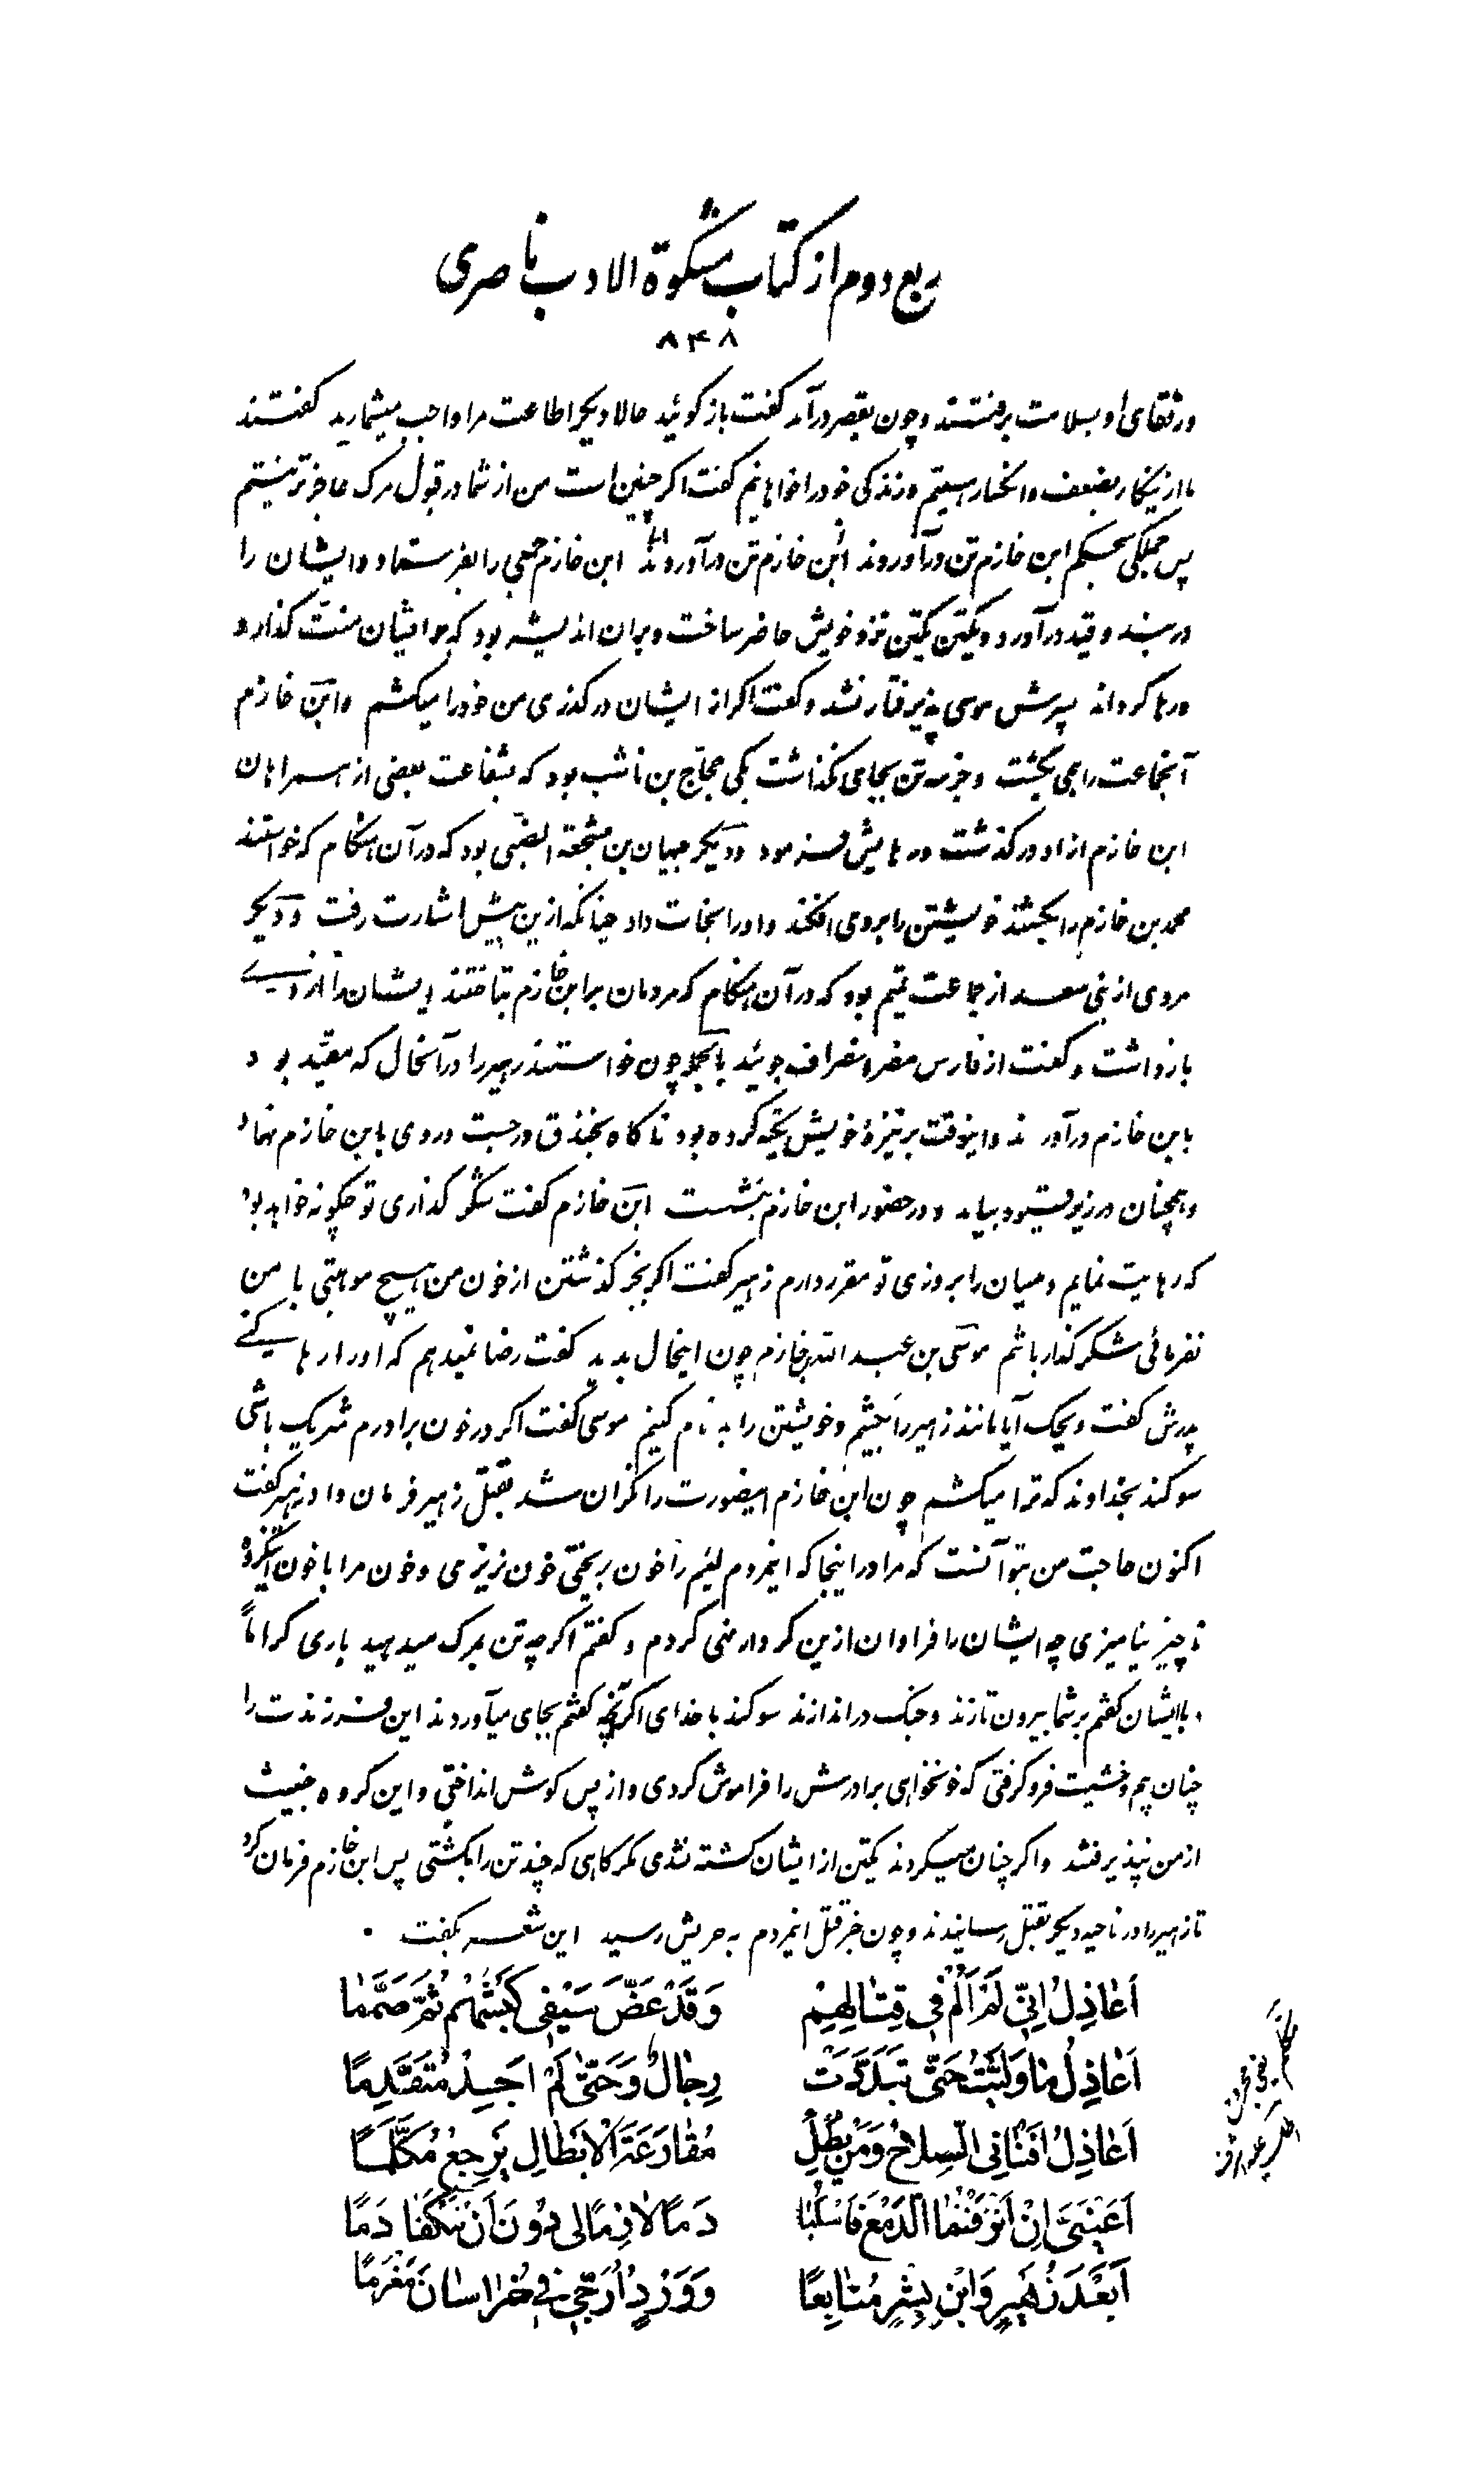 ربع دوم از کتاب مشکوة الادب ناصری
۸۴۸
ورفقای او بسلامت برفتند وچون بقصر درآمد گفت بازگوئید حالا دیگر اطاعت مرا واجب میشمارید گفتند
ما ازینکار بضعف وانکسار هستیم وزندگی خود را خواهانیم گفت اگر چنین است من از شما در قبول مرگ عاجزتر نیستم
پس جملگی بحکم ابن خازم تن درآوردند ابن خازم جمعی را بفرستاد وایشان را
در بند وقید درآورد ویکتن یکتن نزد خویش حاضر ساخت وبران اندیشه بود که برایشان منت گذارد
ورها گرداند پسرش موسی پذیرفتار نشد وگفت اگر از ایشان درگذری من خود را میکشم وابن خازم
آنجماعت را همی بکشت وجز سه تن بجای نگذاشت یکی حجاج بن ناشب بود که بشفاعت بعضی از همراهان
ابن خازم از او درگذشت ورهایش فرمود ودیگر جیهان بن مشجعة الضبی بود که در آن هنگام که خواستند
محمد بن خازم را بکشند خویشتن را بروی افکند واورا نجات داد چنانکه ازین پیش اشارت رفت ودیگر
مردی از بنی سعد از جماعت تمیم بود که در آن هنگام که مردمان بر ابن خازم بتاختند ایشان را از وی
بازداشت وگفت از فارس مضر انصراف جوئید بالجمله چون خواستند زهیر را در آنحال که مقید بود
بابن خازم درآورند واینوقت بر نیزۀ خویش تکیه کرده بود ناگاه بخندق درجست وروی بابن خازم نهاد
وهمچنان در زیر قیود بیامد ودر حضور ابن خازم بنشست ابن خازم گفت شکرگذاری تو چگونه خواهد بود
که رهایت نمایم ومیان را بروزی تو مقرر دارم زهیر گفت اگر بجز گذشتن از خون من هیچ موهبتی با من
نفرمائی شکرگذار باشم موسی بن عبد الله بن خازم چون اینحال بدید گفت رضا نمیدهم که اورا رها کنے
پدرش گفت ویحک آیا مانند زهیر را بکشیم وخویشتن را بدنام کنیم موسی گفت اگر در خون برادرم شریک باشی
سوگند بخداوند که ترا میکشم چون ابن خازم اینصورت را نگران شد بقتل زهیر فرمان داد زهیر گفت
اکنون حاجت من بتو آنست که مرا در اینجا که اینمردم لئیم را خون بریختی خون نریزی وخون مرا با خون اینگروه
ناچیز نیامیزی چه ایشان را فراوان ازین کردار منهی کردم وگفتم اگرچه تن بمرگ میدهید باری کراماً
باایشان گفتم بر شما بیرون تازند وجنگ دراندازند سوگند با خدای اگر آنچه گفتم بجای میآوردند این فرزندت را
چنان بیم وخشیت فرو گرفتی که خونخواهی برادرش را فراموش کردی واز پس گوش انداختی واین گروه خبیث
از من نپذیرفتند واگر چنان میکردند یکتن از ایشان کشته نشدی مگر گاهی که چند تن را بکشتی پس ابن خازم فرمان کرد
تا زهیر را در ناحیه دیگر بقتل رسانیدند وچون خبر قتل اینمردم به حریش رسید این شعر بگفت
اَعٰاذِلُ اِنّی لَمْ اَلُمْ فی قِتٰالِهِمْ وَقَدْ عَضَّ سَیْفی کَبْشَهُمْ ثُمَّ صَمَّمٰا
اَعٰاذِلُ مٰا وَلَّیْتُ حَتّیٰ تَبَدَّدَتْ رِجٰالٌ وَحَتّیٰ لَمْ اَجِدْ مُتَقَدِّمًا
اَعٰاذِلُ اَفْنٰانِی السِّلٰاحُ وَمَنْ یُطِلْ مُقٰارَعَةَ الْاَبْطٰالِ یَرْجِعْ مُکَلَّمًا
اَعَیْنَیَّ اِنْ اَنْزَفْتُمَا الدَّمْعَ فَاسْکُبٰا دَمًا لٰازِمًا لی دُونَ اَنْ تَسْکُفٰا دَمًا
اَبَعْدَ زُهَیْرٍ وَابْنِ بِشْرٍ مُتٰابِعًا وَوَرْدٍ اُرَجّی فی خُرٰاسٰانَ مَغْرَمًا